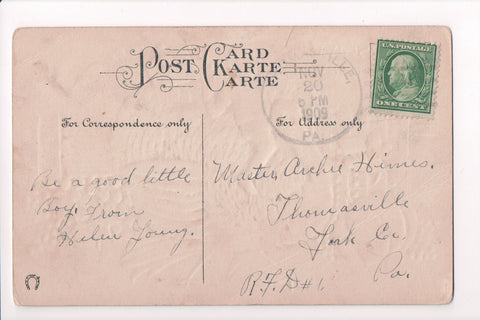 POST CARD
KARTE
CARTE
NOV
20
6 PM
1909
PA.
U.S. POSTAGE
ONE CENT
For Correspondence only
For Address only
Be a good little
Boy. From
Helen Young.
Master Archie Himes.
Thomasville
York Co.
Pa.
R.F.D #1